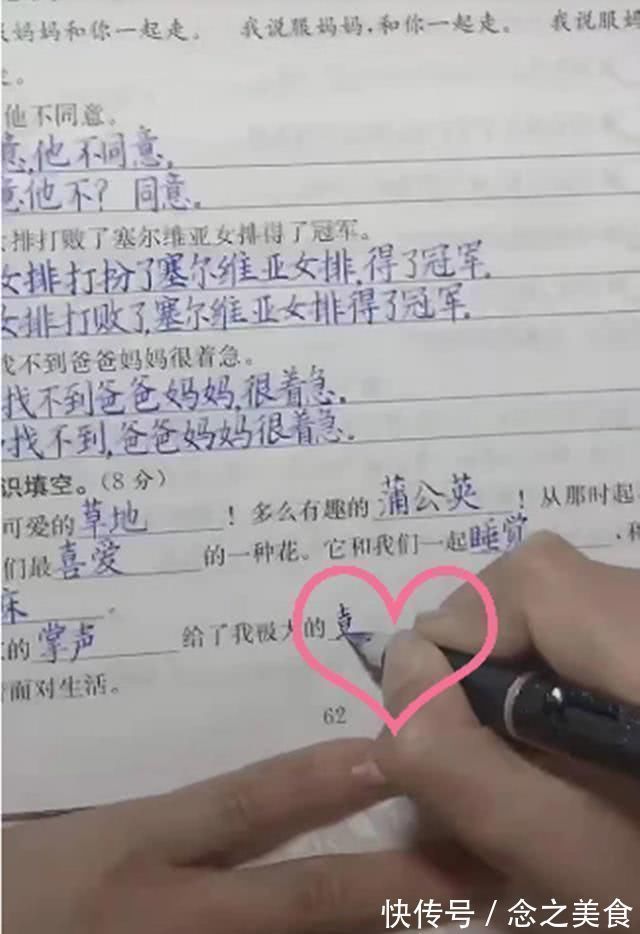 妈妈和你一起走。 我说服妈妈,和你一起走。 我说服妈
。
他不同意。
意,他不同意。
意他不?同意。
女排打败了塞尔维亚女排得了冠军。
女排打扮了塞尔维亚女排,得了冠军.
女排打败了,塞尔维亚女排得了冠军.
找不到爸爸妈妈很着急。
找不到爸爸妈妈,很着急。
找不到,爸爸妈妈很着急。
识填空。(8分)
可爱的草地!多么有趣的蒲公英!从那时起
们最喜爱的一种花。它和我们一起睡觉,
床。
的掌声给了我极大的
面对生活。
62
快传号 / 念之美食